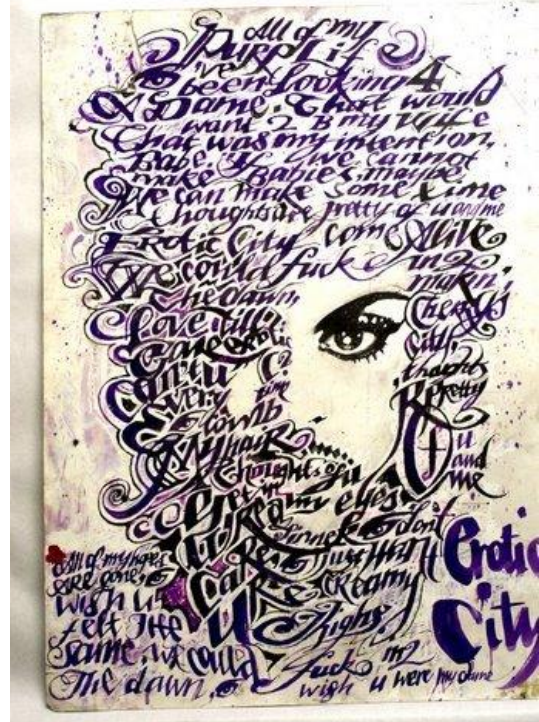 All of my
Purpl Lif
I've
been looking 4
A Dame, That would
want 2 B my wife
That was my intention,
Babe. If we cannot
make Babies, maybe
We can make some time
Thoughts are pretty of u and me
Erotic City com Alive
We could fuck in 2
makin'
the dawn,
Love till
city,
thoughts
pretty
every time
comb
My hair
Thoughts of u
u
and
me
Get in
my eyes
don't
Just want
ur creamy
Thighs
All of my hopes
are gone,
wish u
felt the
same, we could
fuck in 2
The dawn,
wish u were my dame
Erotic
City